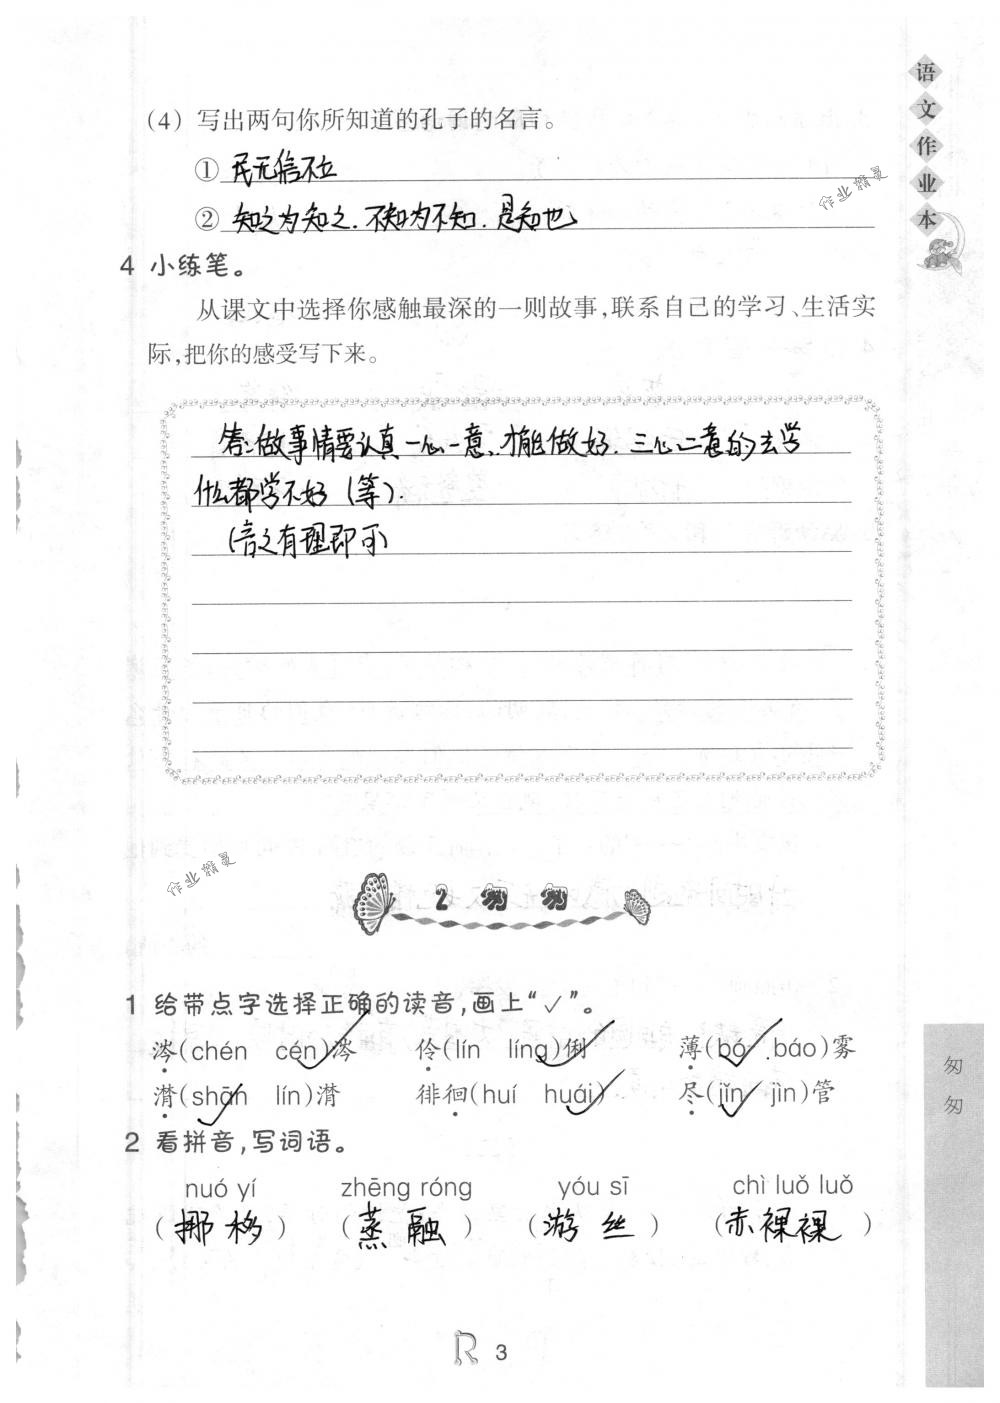 语文作业本
(4) 写出两句你所知道的孔子的名言。
① 民无信不立
② 知之为知之.不知为不知.是知也
作业精灵
4 小练笔。
从课文中选择你感触最深的一则故事,联系自己的学习、生活实
际,把你的感受写下来。
答:做事情要认真一心一意、才能做好.三心二意的去学
什么都学不好(等).
(言之有理即可)
作业精灵
2 匆匆
1 给带点字选择正确的读音,画上“✓”。
涔(chén cén)涔 伶(lín líng)俐 薄(bó báo)雾
潸(shān lín)潸 徘徊(huí huái) 尽(jǐn jìn)管
匆匆
2 看拼音,写词语。
nuó yí zhēng róng yóu sī chì luǒ luǒ
(挪移) (蒸融) (游丝) (赤裸裸)
R 3